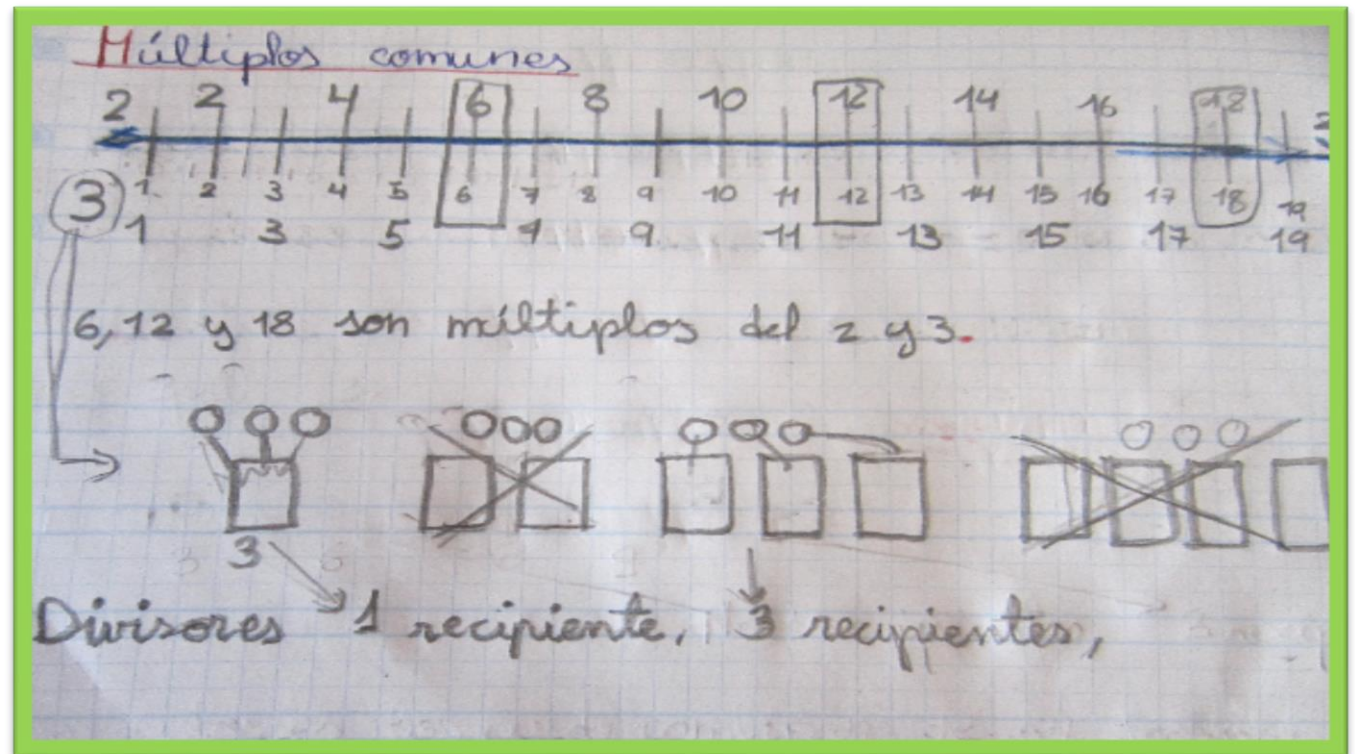 Múltiplos comunes
2 2 4 6 8 10 12 14 16 18
1 2 3 4 5 6 7 8 9 10 11 12 13 14 15 16 17 18 19
3 1 3 5 9 11 13 15 17 19
6, 12 y 18 son múltiplos del 2 y 3.
3
Divisores 1 recipiente, 3 recipientes,